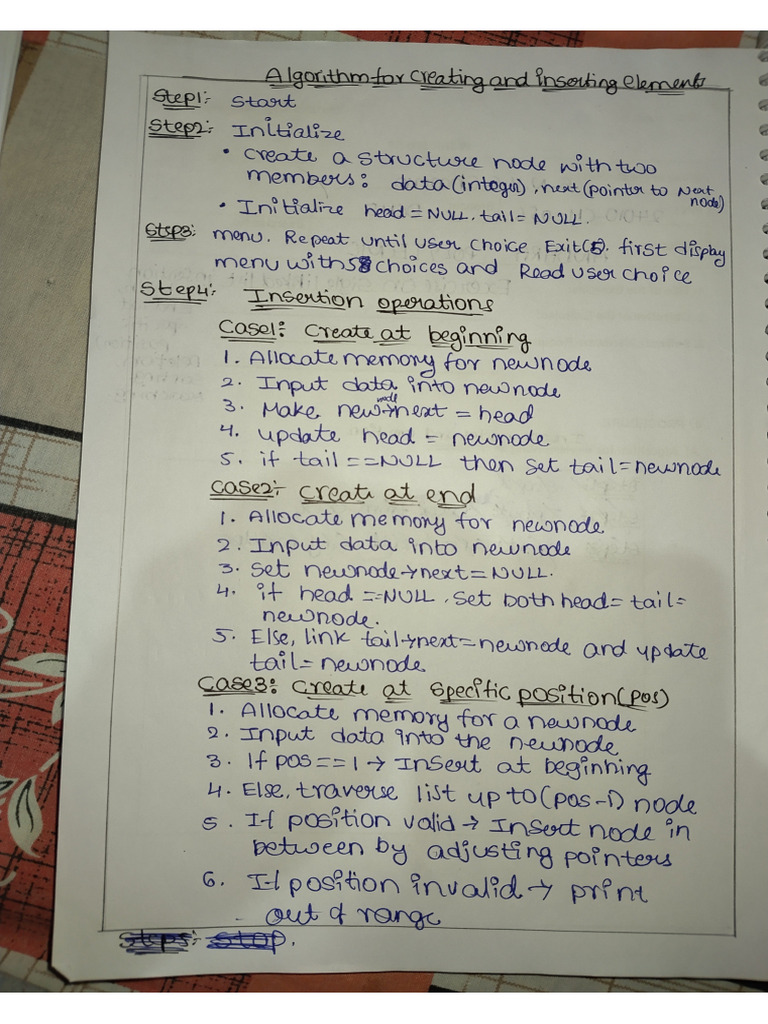 Algorithm for creating and inserting elements
Step1:- Start
Step2:- Initialize
• create a structure node with two
members: data(integer), next(pointer to Next
node)
• Initialize head = NULL, tail = NULL.
Step3: menu. Repeat until user choice Exit(5). first display
menu with 5 choices and Read user choice
Step4:- Insertion operations
Case1: Create at beginning
1. Allocate memory for newnode
2. Input data into newnode
3. Make new node→next = head
4. update head = newnode
5. if tail == NULL then set tail = newnode
Case2:- Create at end
1. Allocate memory for newnode
2. Input data into newnode
3. set newnode→next = NULL.
4. if head == NULL, set both head = tail =
newnode.
5. Else, link tail→next = newnode and update
tail = newnode
Case3: Create at specific position(pos)
1. Allocate memory for a newnode
2. Input data into the newnode
3. If pos == 1 → Insert at beginning
4. Else, traverse list up to (pos-1) node
5. If position valid → Insert node in
between by adjusting pointers
6. If position invalid → print
out of range
Step5:- Stop.